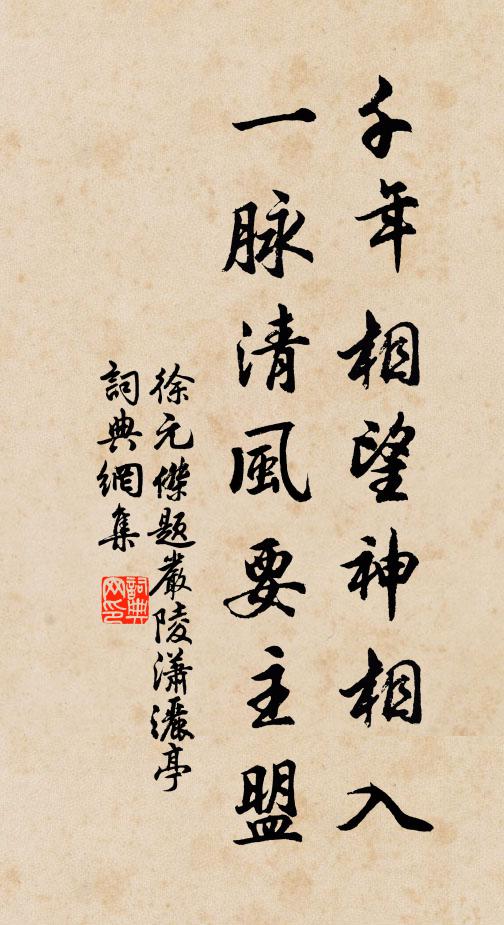 千年相望神相入
一脉清風要主盟
徐元傑題嚴陵瀟灑亭
詞典網集
詞典網印